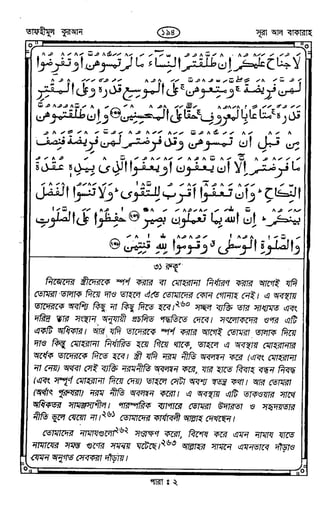 তাফহীমুল কুরআন
১৯৪
সূরা আল বাকারাহ
لَا جُنَاحَ عَلَيْكُمْ إِنْ طَلَّقْتُمُ النِّسَاءَ مَا لَمْ تَمَسُّوهُنَّ أَوْ تَفْرِضُوا
لَهُنَّ فَرِيضَةً ۖ وَمَتِّعُوهُنَّ ۚ عَلَى الْمُوسِعِ قَدَرُهُ وَعَلَى الْمُقْتِرِ
قَدَرُهُ ۚ مَتَاعًا بِالْمَعْرُوفِ ۚ حَقًّا عَلَى الْمُحْسِنِينَ ﴿٢٣٦﴾ وَإِنْ طَلَّقْتُمُوهُنَّ
مِنْ قَبْلِ أَنْ تَمَسُّوهُنَّ وَقَدْ فَرَضْتُمْ لَهُنَّ فَرِيضَةً فَنِصْفُ
مَا فَرَضْتُمْ إِلَّا أَنْ يَعْفُونَ أَوْ يَعْفُوَا الَّذِي بِيَدِهِ عُقْدَةُ
النِّكَاحِ ۚ وَأَنْ تَعْفُوا أَقْرَبُ لِلتَّقْوَىٰ ۚ وَلَا تَنْسَوُا الْفَضْلَ
بَيْنَكُمْ ۚ إِنَّ اللَّهَ بِمَا تَعْمَلُونَ بَصِيرٌ ﴿٢٣٧﴾ حَفِظُوا عَلَى الصَّلَوٰتِ
وَالصَّلَوٰةِ الْوُسْطَىٰ ۚ وَقُومُوا لِلَّهِ قَٰنِتِينَ ﴿٢٣٨﴾
৩১ রুকূ'
নিজেদের স্ত্রীদেরকে স্পর্শ করার বা মোহরানা নির্ধারণ করার আগেই যদি
তোমরা তালাক দিয়ে দাও তাহলে এতে তোমাদের কোন গোনাহ নেই। এ অবস্থায়
তাদেরকে অবশ্যি কিছু না কিছু দিতে হবে।২৬০ সচ্ছল ব্যক্তি তার সাধ্যমত এবং
দরিদ্র তার সংস্থান অনুযায়ী প্রচলিত পদ্ধতিতে দেবে। সৎলোকদের ওপর এটি
একটি অধিকার। আর যদি তাদেরকে স্পর্শ করার আগেই তোমরা তালাক দিয়ে
দাও কিন্তু মোহরানা নির্ধারিত হয়ে গিয়ে থাকে, তাহলে এ অবস্থায় মোহরানার
অর্ধেক তাদেরকে দিতে হবে। স্ত্রী যদি নরম নীতি অবলম্বন করে (এবং মোহরানা
না নেয়) অথবা সেই ব্যক্তি নরমনীতি অবলম্বন করে, যার হাতে বিবাহ বন্ধন নিবদ্ধ
(এবং সম্পূর্ণ মোহরানা দিয়ে দেয়) তাহলে সেটা অবশ্য স্বতন্ত্র কথা। আর তোমরা
(অর্থাৎ পুরুষরা) নরম নীতি অবলম্বন করো। এ অবস্থায় এটি তাকওয়ার সাথে
অধিকতর সামঞ্জস্যশীল। পারস্পরিক ব্যাপারে তোমরা উদারতা ও সহৃদয়তার
নীতি ভুলে যেয়ো না।২৬১ তোমাদের কার্যাবলী আল্লাহ দেখছেন।
তোমাদের নামাযগুলো২৬২ সংরক্ষণ করো, বিশেষ করে এমন নামায যাতে
নামাযের সমস্ত গুণের সমন্বয় ঘটেছে।২৬৩ আল্লাহর সামনে এমনভাবে দাঁড়াও
যেমন অনুগত সেবকরা দাঁড়ায়।
পারা : ২